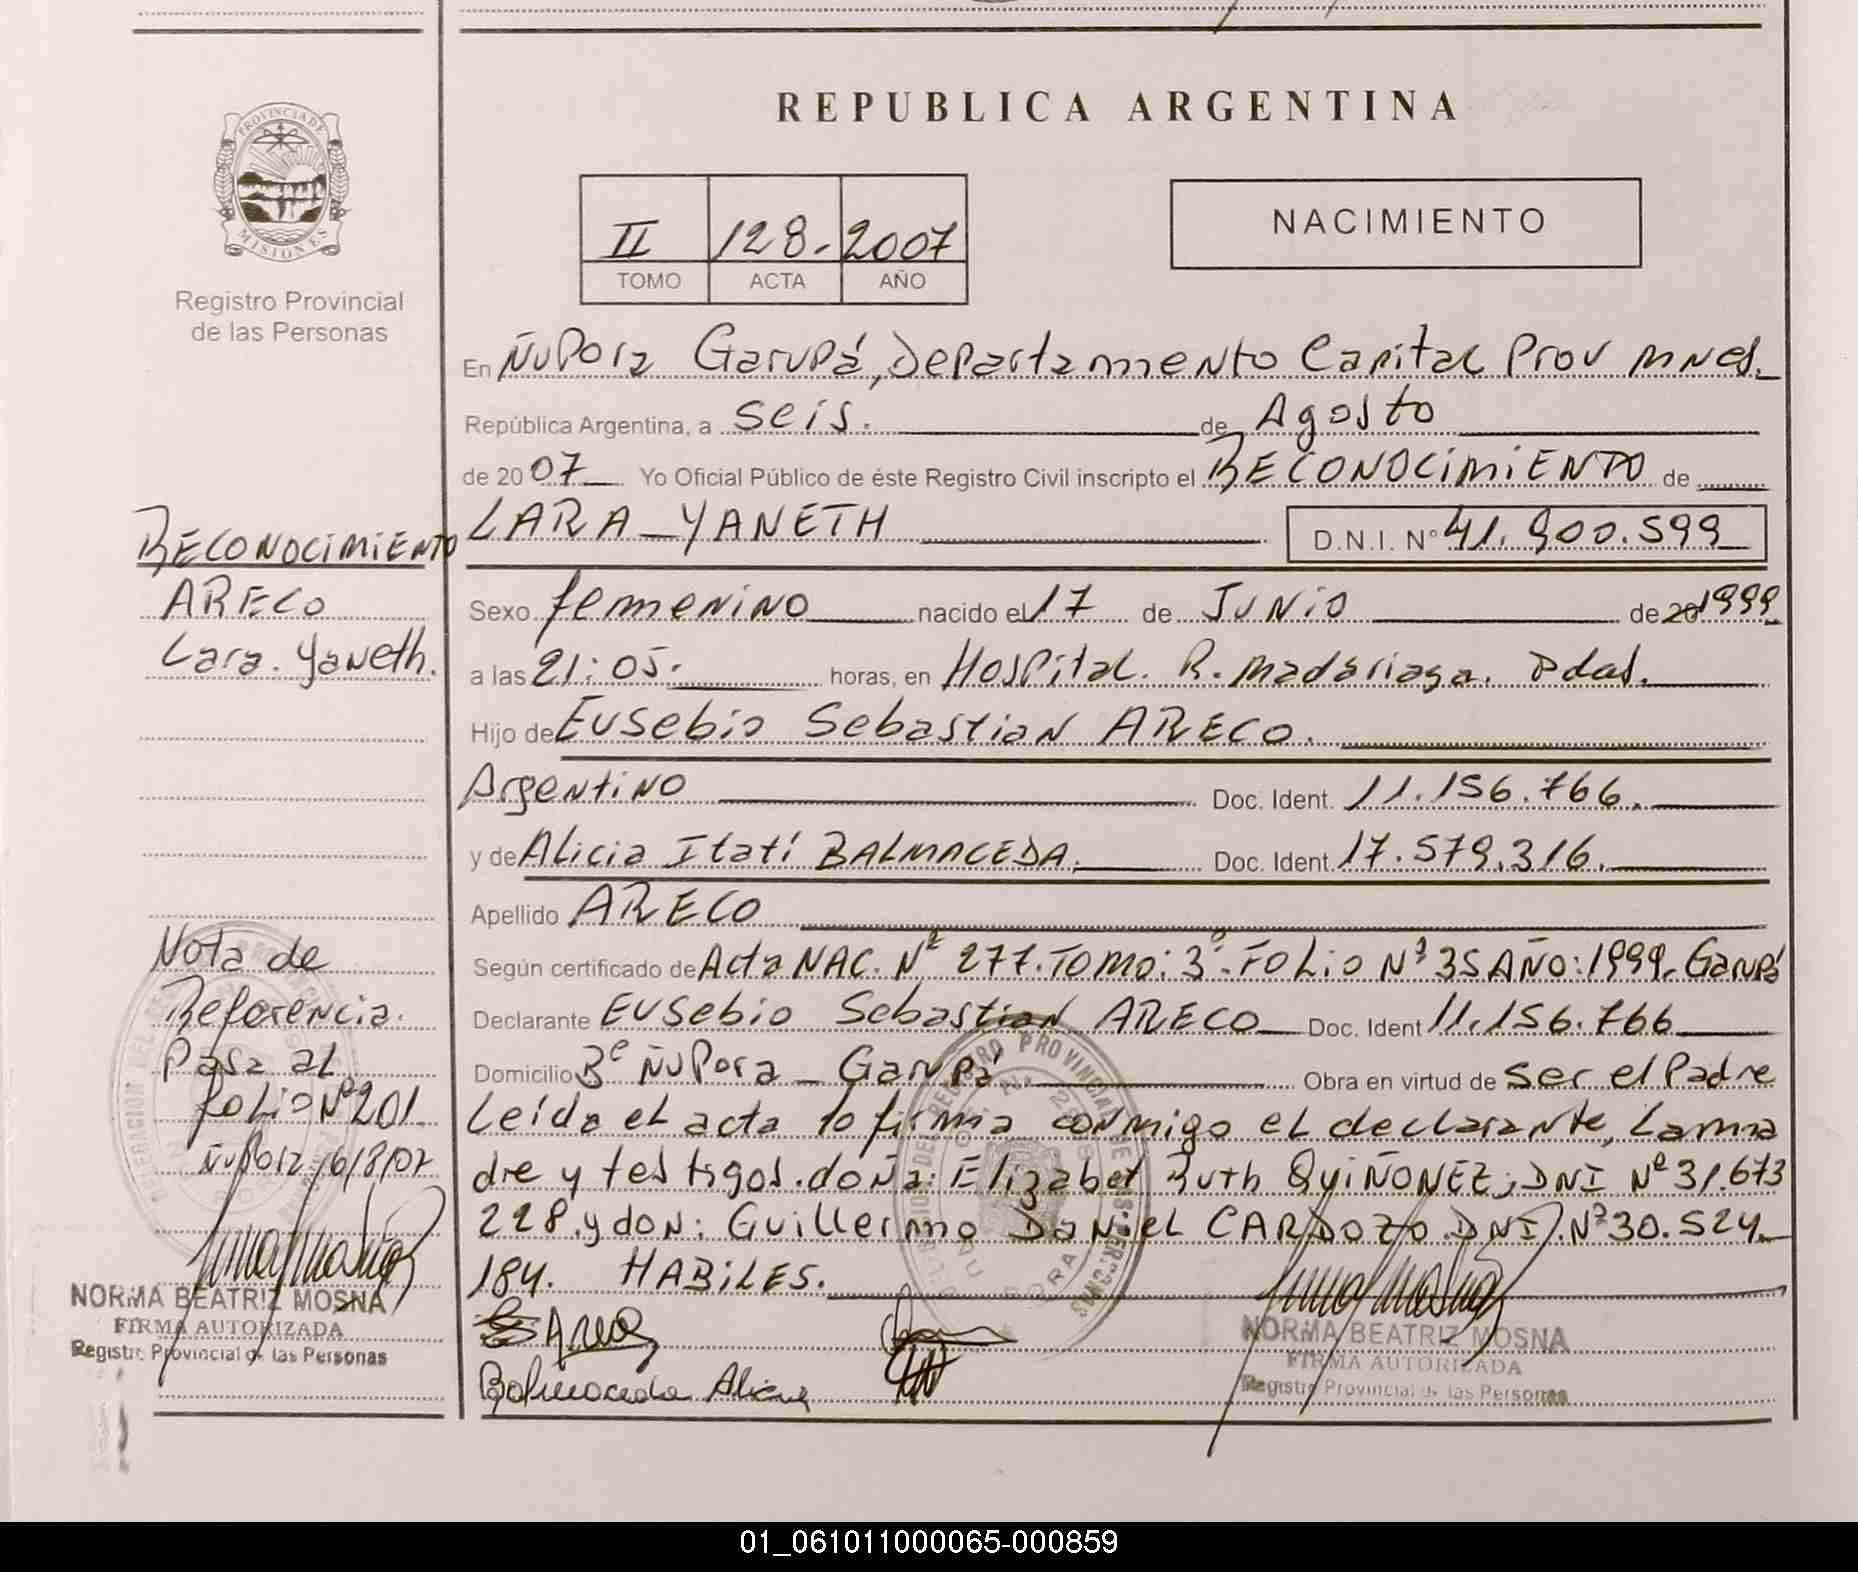 REPUBLICA ARGENTINA
PROVINCIA DE
MISIONES
Registro Provincial
de las Personas
II 128. 2007
TOMO ACTA AÑO
NACIMIENTO
En Ñu Pora Garupá, Departamento Capital Prov Mnes.
República Argentina, a seis. de Agosto
de 2007 Yo Oficial Público de éste Registro Civil inscripto el RECONOCIMIENTO de
LARA YANETH D.N.I. N° 41.900.599
Sexo femenino nacido el 17 de Junio de 20 1999
a las 21:05. horas, en Hospital. R. Madariaga. Pdas.
Hijo de Eusebio Sebastian ARECO.
Argentino Doc. Ident. 11.156.766.
y de Alicia Itatí BALMACEDA. Doc. Ident. 17.579.316.
Apellido ARECO
Según certificado de Acta NAC. Nº 277. Tomo: 3º. Folio Nº 35 AÑO: 1999. Garupá
Declarante Eusebio Sebastian ARECO Doc. Ident 11.156.766
Domicilio Bº Ñu Pora - Garupá Obra en virtud de ser el Padre
Leída el acta la firma conmigo el declarante, la ma
dre y testigos. doña: Elizabet Ruth QUIÑONEZ; DNI Nº 31.673
228. y don: Guillermo Daniel CARDOZO. DNI. Nº 30.524.
184. HABILES.
Balmaceda Alicia
NORMA BEATRIZ MOSNA
FIRMA AUTORIZADA
Registro Provincial de las Personas
RECONOCIMIENTO
ARECO
Lara. Yaneth.
Nota de
Referencia.
Pasa al
folio Nº 201.
Ñu Pora 16/8/07
NORMA BEATRIZ MOSNA
FIRMA AUTORIZADA
Registro Provincial de las Personas
01_061011000065-000859